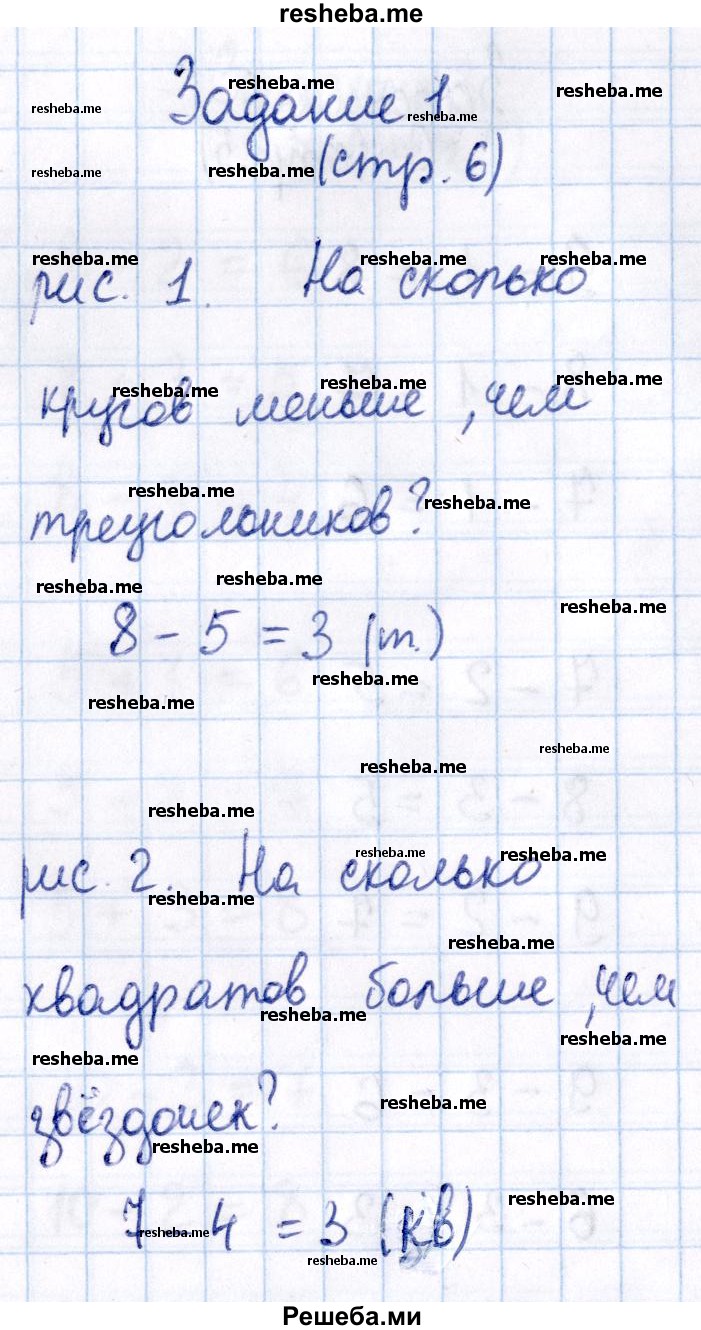 resheba.me
Задание 1
(стр. 6)
рис. 1. На сколько
кругов меньше, чем
треугольников?
8 - 5 = 3 (т.)
рис. 2. На сколько
квадратов больше, чем
звёздочек?
7 - 4 = 3 (кв)
Решеба.ми